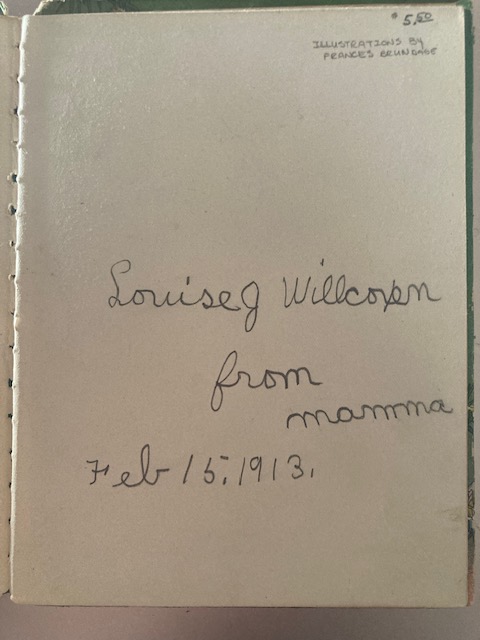 $5.50
ILLUSTRATIONS BY
FRANCES BRUNDAGE
Louise J Willcoxen
from
mamma
Feb 15, 1913.